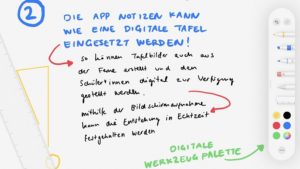 2
DIE APP NOTIZEN KANN
WIE EINE DIGITALE TAFEL
EINGESETZT WERDEN!
so können Tafelbilder auch aus
der Ferne erstellt und den
Schüler*innen digital zur Verfügung
gestellt werden.
mithilfe der Bildschirmaufnahme
kann die Entstehung in Echtzeit
festgehalten werden
DIGITALE
WERKZEUGPALETTE